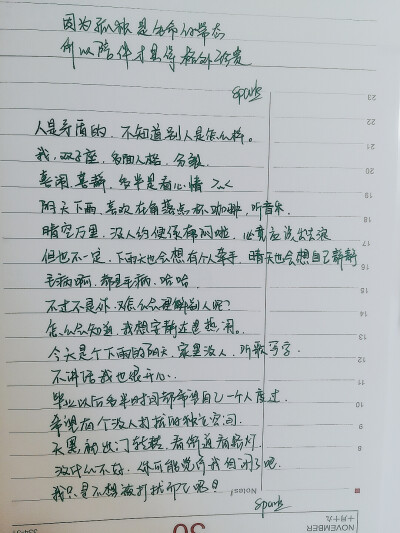 因为孤独是生命的常态
所以陪伴才显得格外珍贵
Spark
人是矛盾的，不知道别人是怎么样。
我，双子座，多面人格，分裂
喜闹，喜静，多半是看心情
阴天下雨，喜欢在角落点杯咖啡，听音乐
晴空万里，没人约便很郁闷啦，心竟应该出去浪
但也不一定，下雨天也会想有个人牵手，晴天也会想自己静静
毛病啊，都是毛病，哈哈
不过不是你，又怎么会理解别人呢？
怎么会知道，我想安静还是热闹。
今天是个下雨的阴天，家里没人，听歌写字
不讲话我也很开心.
毕业以后多半时间都希望自己一个人度过.
希望有个没人打扰的独立空间.
天黑就出门转转，看街道看路灯.
没什么不好，你可能觉得我自闭了吧.
我只是不想被打扰而已吧！
Spark
23
22
21
20
19
18
17
16
15
14
13
12
11
10
9
8
Notes!
30
NOVEMBER
十月十九